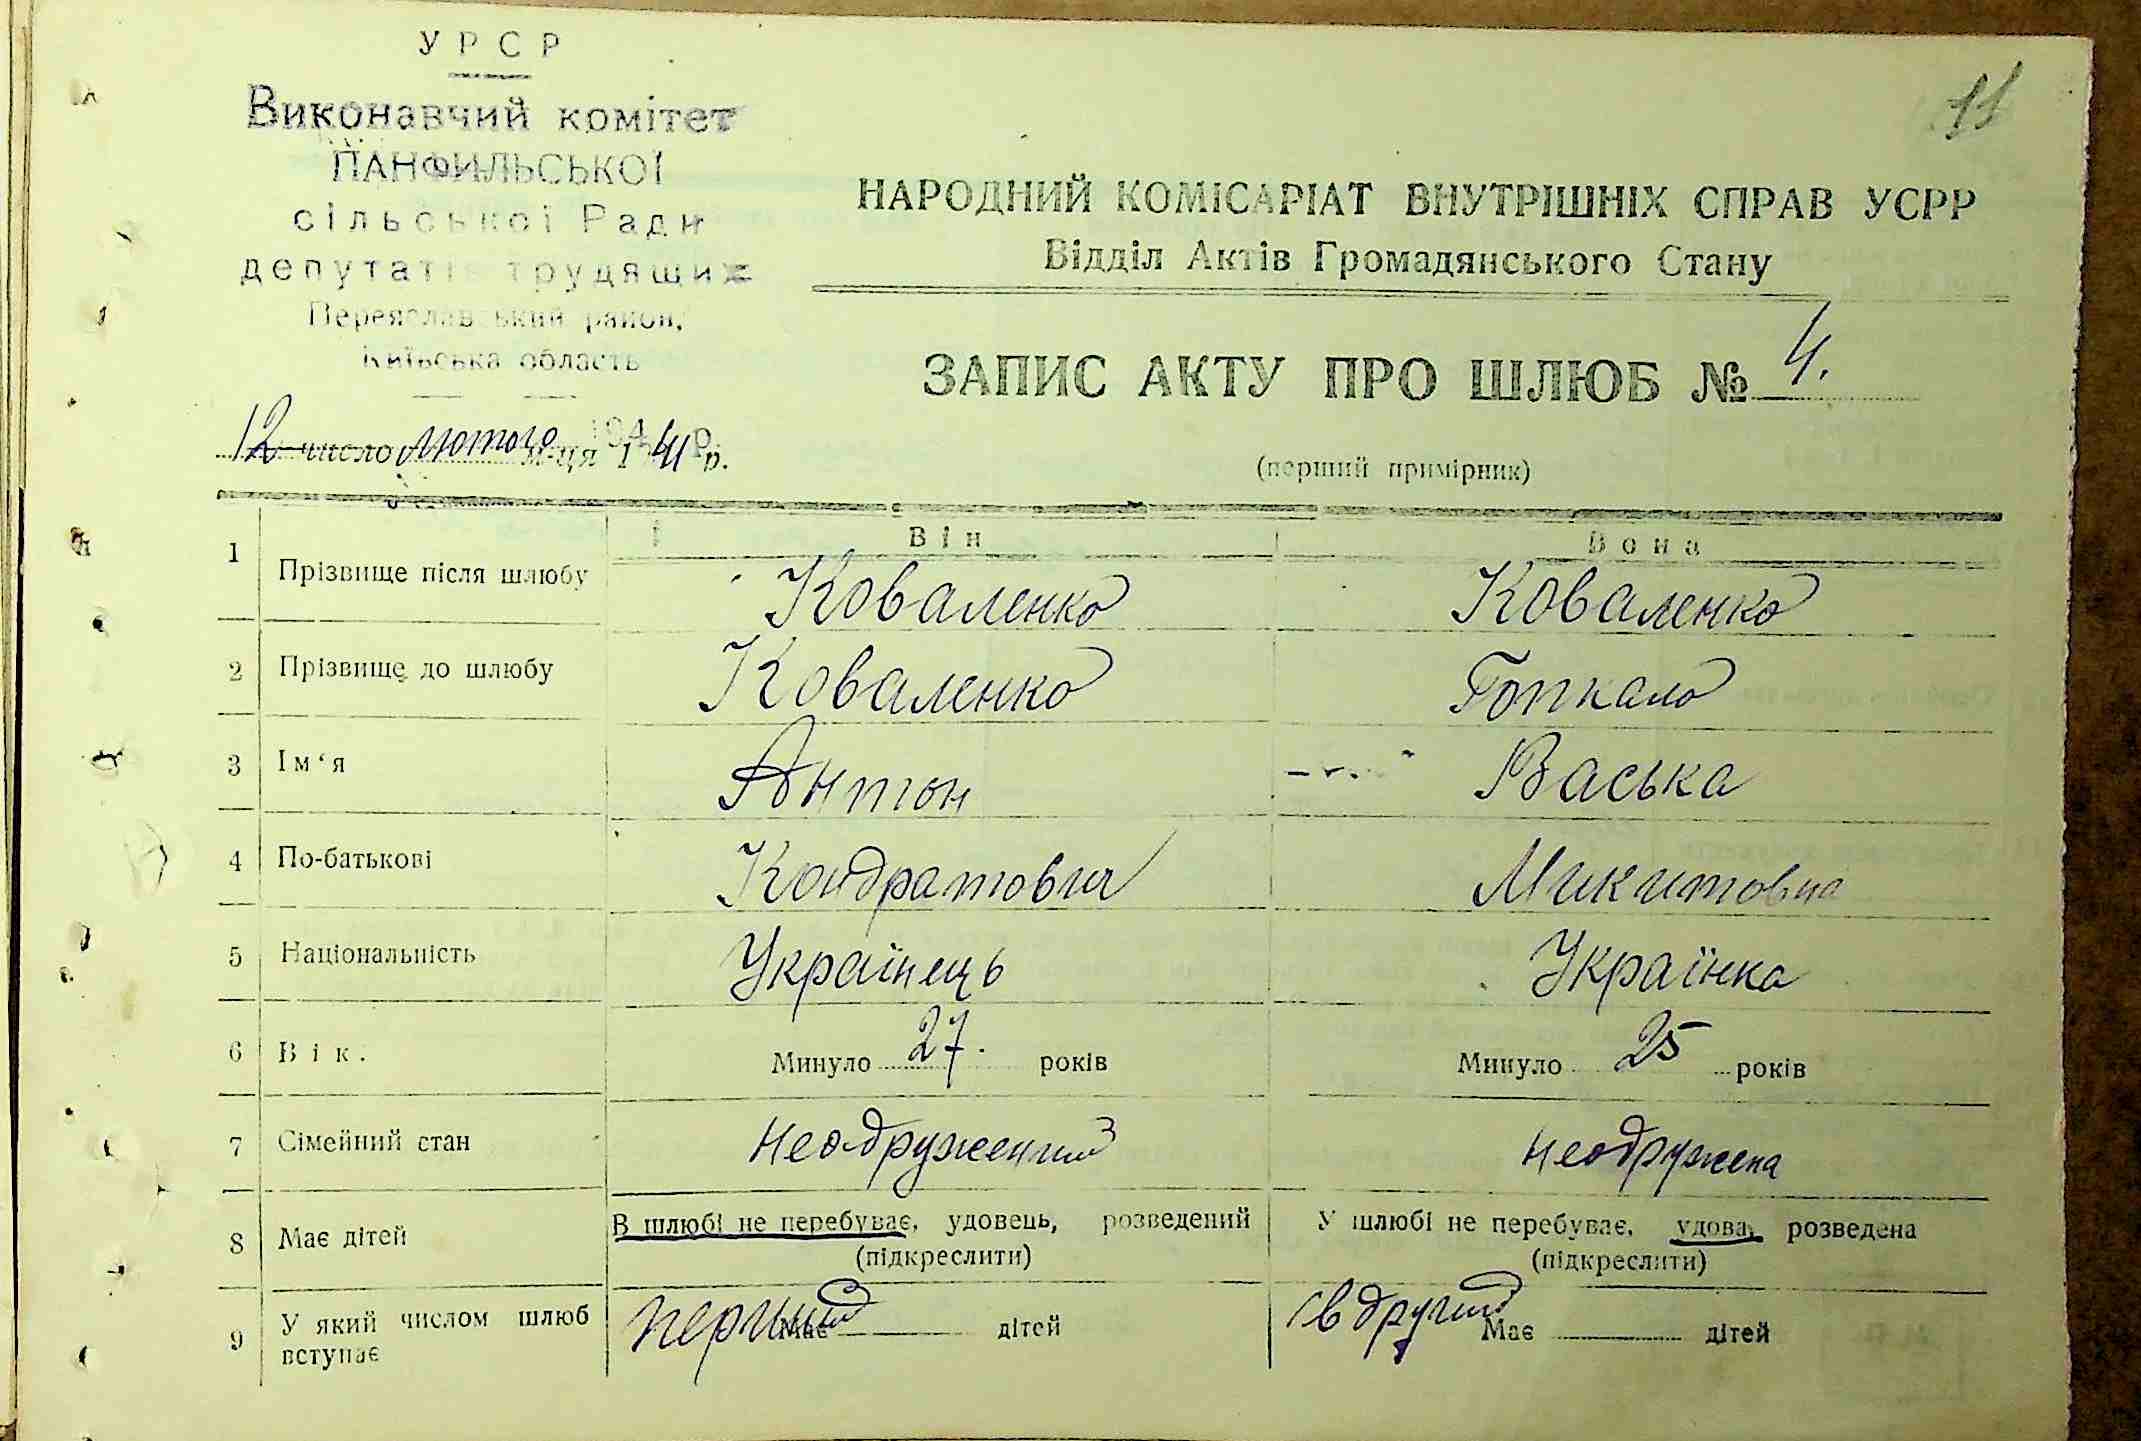 УРСР
Виконавчий комітет
ПАНФИЛЬСЬКОЇ
сільської Ради
депутатів трудящих
Переяславський район,
Київська область
11
НАРОДНИЙ КОМІСАРІАТ ВНУТРІШНІХ СПРАВ УСРР
Відділ Актів Громадянського Стану
ЗАПИС АКТУ ПРО ШЛЮБ № 4.
12 число лютого м-ця 1944 р.
(перший примірник)
Він Вона
1 Прізвище після шлюбу Коваленко Коваленко
2 Прізвище до шлюбу Коваленко Гопкало
3 Ім'я Антон Васька
4 По-батькові Кондратович Микитовна
5 Національність Українець Українка
6 Вік. Минуло 27. років Минуло 25 років
7 Сімейний стан Неодружений неодружена
8 Має дітей В шлюбі не перебуває, удовець, розведений У шлюбі не перебуває, удова, розведена
(підкреслити) (підкреслити)
9 У який числом шлюб вступає перший Має дітей в другий Має дітей